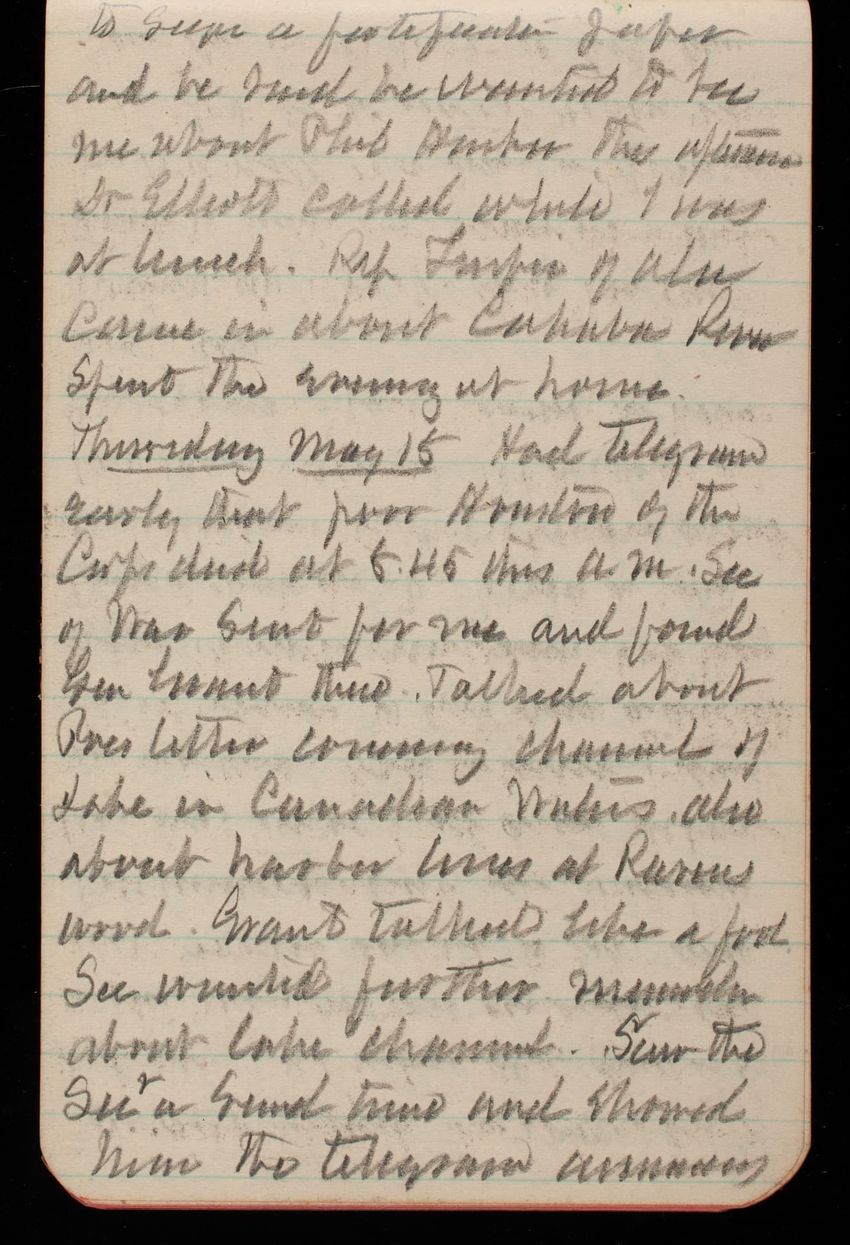 to Supr a fortification Paper
and he said he wanted to see
me about Phil Harbor this afternoon
Dr Elliott called while I was
at lunch. Rep Turpin of Ala
Came in about Cahaba River
Spent the evening at home.
Thursday May 15 Had telegram
early that poor Houston of the
Corps died at 5.45 this a.m. Sec
of War Sent for me and found
Gen Grant there. Talked about
Pres letter concerning channel of
Lake in Canadian Waters, also
about harbor lines at Ravens
wood. Grant talked like a fool
Sec wanted further memoranda
about lake channel. Saw the
Secy a Second time and Showed
him the telegram announcing